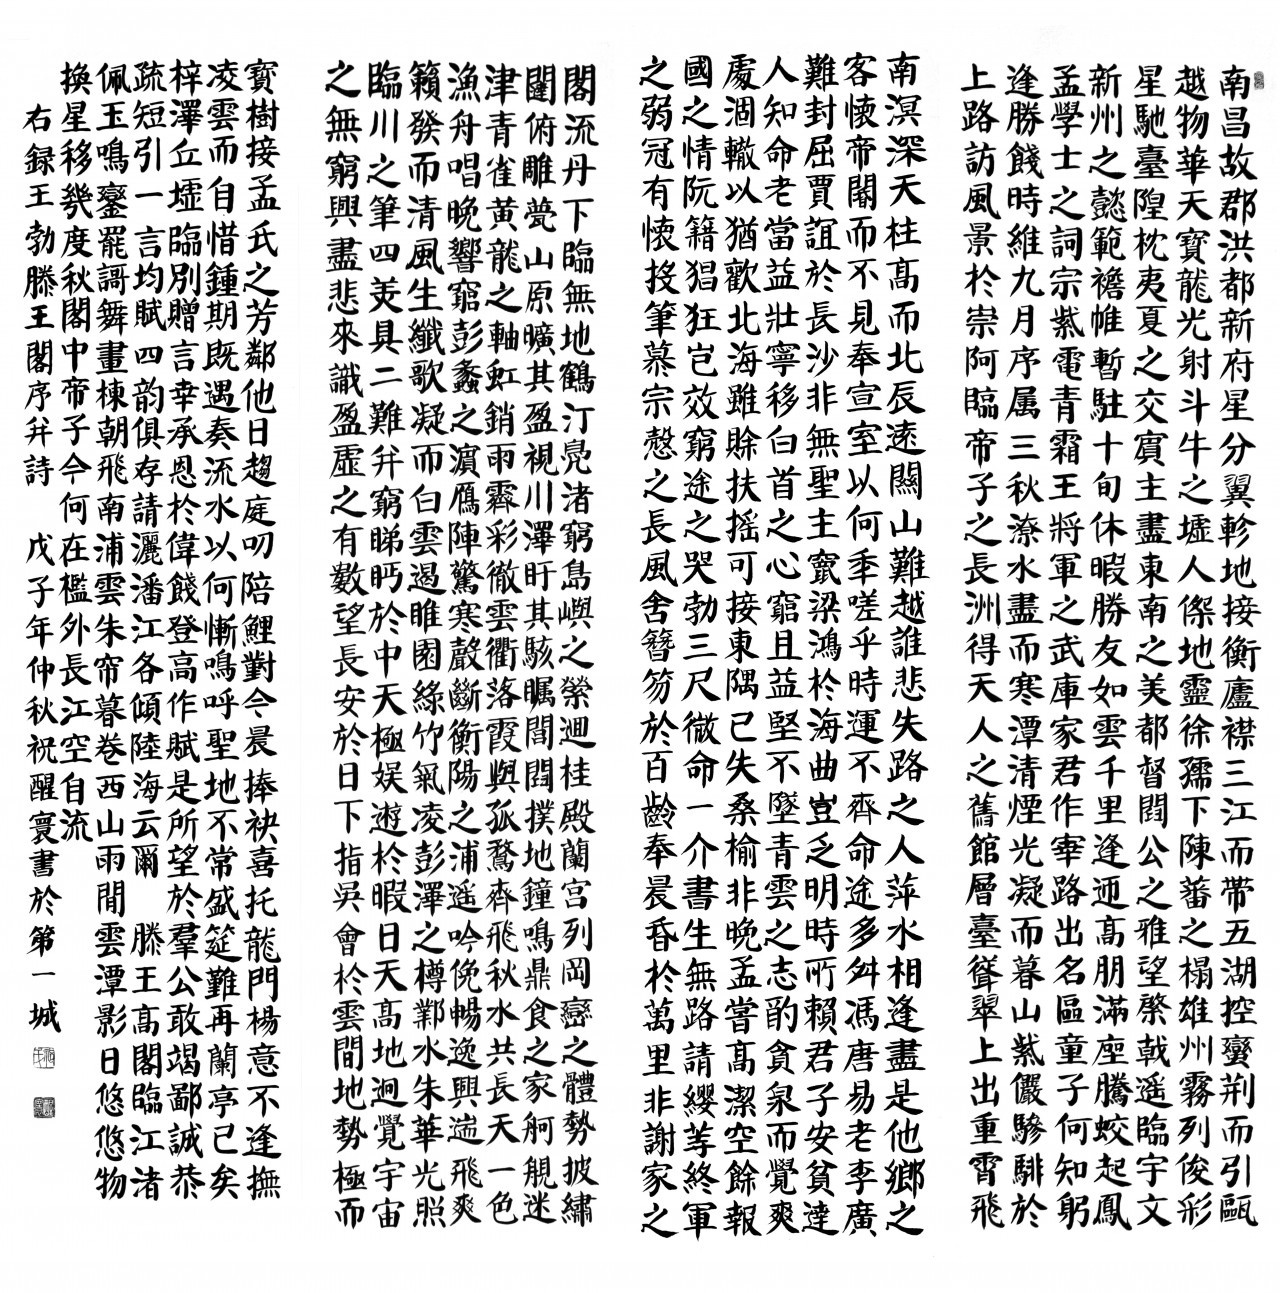 南昌故郡洪都新府星分翼軫地接衡廬襟三江而帶五湖控蠻荆而引甌
越物華天寶龍光射斗牛之墟人傑地靈徐孺下陳蕃之榻雄州霧列俊彩
星馳臺隍枕夷夏之交賓主盡東南之美都督閻公之雅望棨戟遥臨宇文
新州之懿範襜帷暫駐十旬休暇勝友如雲千里逢迎高朋滿座騰蛟起鳳
孟學士之詞宗紫電青霜王將軍之武庫家君作宰路出名區童子何知躬
逢勝餞時維九月序属三秋潦水盡而寒潭清煙光凝而暮山紫儼驂騑於
上路訪風景於崇阿臨帝子之長洲得天人之舊館層臺聳翠上出重霄飛
南溟深天柱高而北辰遠關山難越誰悲失路之人萍水相逢盡是他鄉之
客懷帝閽而不見奉宣室以何年嗟乎時運不齊命途多舛馮唐易老李廣
難封屈賈誼於長沙非無聖主竄梁鴻於海曲豈乏明時所賴君子安貧達
人知命老當益壯寧移白首之心窮且益堅不墜青雲之志酌貪泉而覺爽
處涸轍以猶歡北海雖賒扶摇可接東隅已失桑榆非晚孟嘗高潔空餘報
國之情阮籍猖狂豈效窮途之哭勃三尺微命一介書生無路請纓等終軍
之弱冠有懷投筆慕宗慤之長風舍簪笏於百齡奉晨昏於萬里非謝家之
閣流丹下臨無地鶴汀鳧渚窮島嶼之縈迴桂殿蘭宫列岡巒之體勢披繡
闥俯雕甍山原曠其盈視川澤盱其駭矚閭閻撲地鐘鳴鼎食之家舸艦迷
津青雀黄龍之軸虹銷雨霽彩徹雲衢落霞與孤鶩齊飛秋水共長天一色
漁舟唱晚響窮彭蠡之濵鴈陣驚寒聲斷衡陽之浦遥吟俛暢逸興遄飛爽
籟發而清風生纖歌凝而白雲遏睢園綠竹氣凌彭澤之樽鄴水朱華光照
臨川之筆四美具二難并窮睇眄於中天極娱遊於暇日天高地迥覺宇宙
之無窮興盡悲來識盈虚之有數望長安於日下指吳會於雲間地勢極而
寳樹接孟氏之芳鄰他日趨庭叨陪鯉對今晨捧袂喜托龍門楊意不逢撫
凌雲而自惜鍾期既遇奏流水以何慚鳴呼聖地不常盛筵難再蘭亭已矣
梓澤丘墟臨別贈言幸承恩於偉餞登高作賦是所望於羣公敢竭鄙誠恭
疏短引一言均賦四韵俱存請灑潘江各傾陸海云爾 滕王高閣臨江渚
佩玉鳴鑾罷謌舞畫棟朝飛南浦雲朱帘暮卷西山雨間雲潭影日悠悠物
換星移幾度秋閣中帝子今何在檻外長江空自流
右録王勃滕王閣序并詩 戊子年仲秋祝醒寰書於第一城